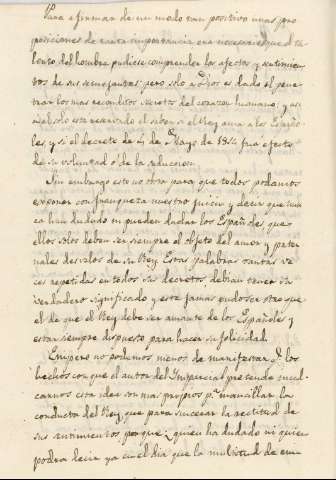 Para afirmar de un modo tan positivo unas pro
posiciones de tanta importancia era necesario que el ta
lento del hombre pudiese comprender los afectos y sentimien
tos de sus semejantes pero solo a Dios es dado el pene
trar los mas reconditos secretos del corazon humano, y a
el solo esta reservado el saber si el Rey ama a los Españo
les y si el decreto de 4 de Mayo de 1814 fue efecto
de su voluntad o de la seduccion.
Sin embargo esto no obra para que todos podamos
exponer con franqueza nuestro juicio y decir que nun
ca han dudado ni pueden dudar los Españoles que
ellos solos deban ser siempre el objeto del amor y pater
nales desvelos de su Rey. Estas palabras tantas ve
ces repetidas en todos sus decretos, debian tener su
verdadero significado y este jamas pudo ser otro que
el de que el Rey debe ser amante de los Españoles y
estar siempre dispuesto para hacer su felicidad.
Empero no podemos menos de manifestar q.e los
hechos con que el autor del Imparcial pretende incul
carnos esta idea son mas propios p.a mancillar la
conducta del Rey, que para sincerar la rectitud de
sus sentimientos porque ¿quien ha dudado ni quien
podra decir ya en el dia que la multitud de em